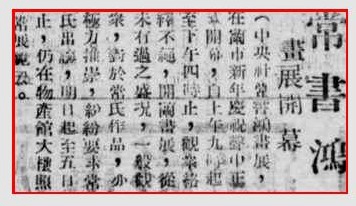 常書鴻
畫展開幕
（中央社常書鴻畫展，
在蘭市新年慶祝聲中正
式開幕，自上午九時起
至下午四時止，觀衆絡
繹不絕，開蘭畫展，從
未有過之盛况，一般觀
衆，對於常氏作品，亦
極力推崇，紛紛要求常
氏出讓，明日起至五日
止，仍在物產館大樓照
常展覽云。